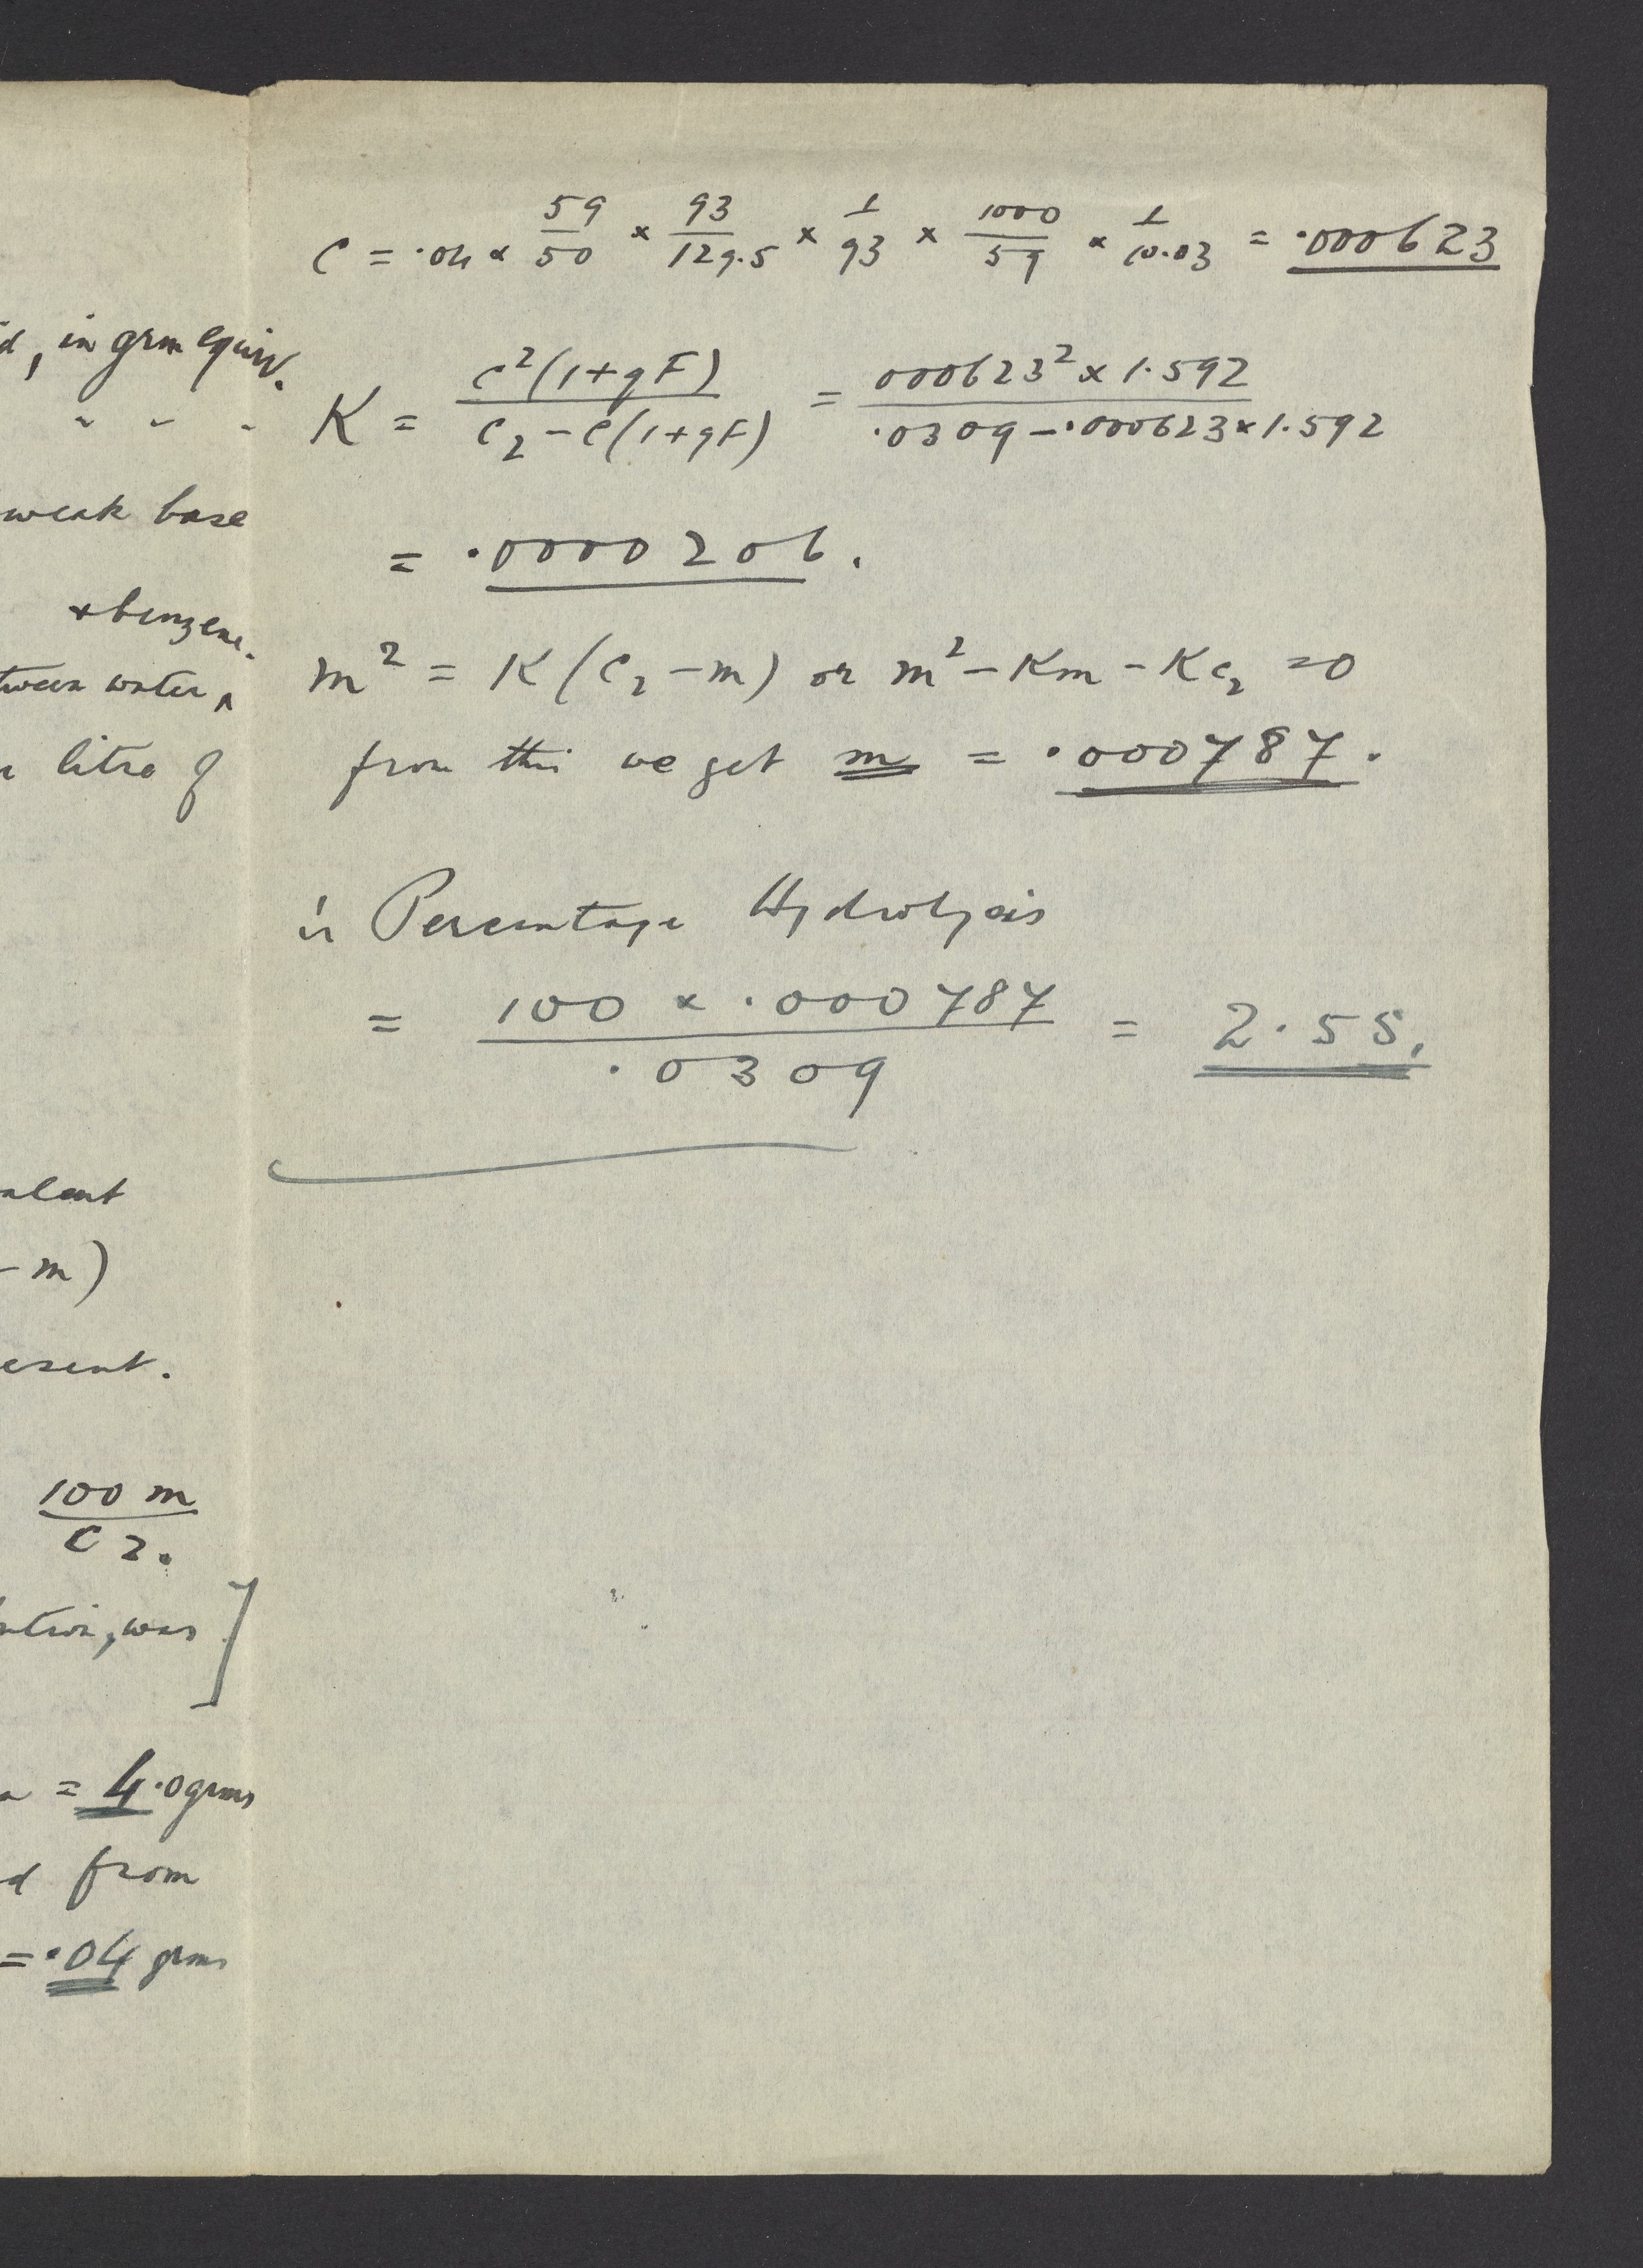 d, in grm equiv.
" " "
weak base
& benzene.
tween water ^
litre of
alent
- m)
esent.
100 m / C2.
ution, was ]
= 4.0 grms
d from
= .04 grms
C = .04 × 59/50 × 93/129.5 × 1/93 × 1000/59 × 1/10.03 = .000623
K = c²(1+qF) / C₂-C(1+qF) = 000623² × 1.592 / .0309-.000623×1.592
= .0000206.
m² = K(C₂-m) or m²-Km-KC₂ =0
from this we get m = .000787.
Percentage Hydrolysis
= 100 × .000787 / .0309 = 2.55.